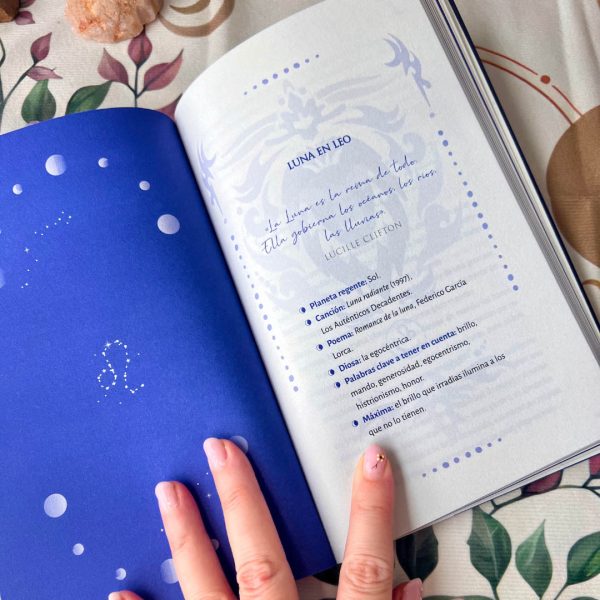 LUNA EN LEO
«La Luna es la reina de todo.
Ella gobierna los océanos, los ríos,
las lluvias».
LUCILLE CLIFTON
Planeta regente: Sol.
Canción: Luna radiante (1997),
Los Auténticos Decadentes.
Poema: Romance de la luna, Federico García
Lorca.
Diosa: la egocéntrica.
Palabras clave a tener en cuenta: brillo,
mando, generosidad, egocentrismo,
histrionismo, honor.
Máxima: el brillo que irradias ilumina a los
que no lo tienen.